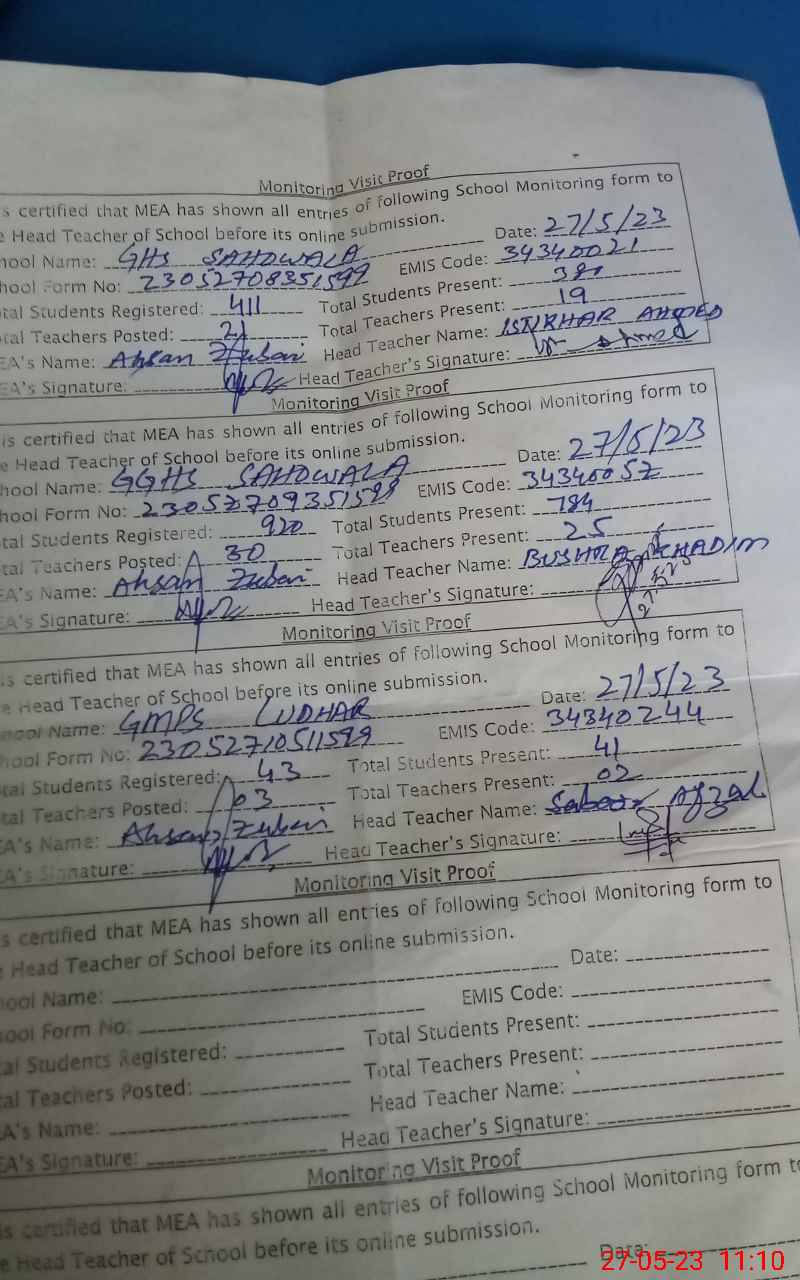 Monitoring Visit Proof
s certified that MEA has shown all entries of following School Monitoring form to
e Head Teacher of School before its online submission. Date: 27/5/23
hool Name: GHS SAHOWALA EMIS Code: 34340021
hool Form No: 23052708351599 Total Students Present: 381
tal Students Registered: 411 Total Teachers Present: 19
tal Teachers Posted: 21 Head Teacher Name: ISTIKHAR AHMED
EA's Name: Ahsan Zubari Head Teacher's Signature:
EA's Signature:
Monitoring Visit Proof
is certified that MEA has shown all entries of following School Monitoring form to
e Head Teacher of School before its online submission. Date: 27/5/23
hool Name: GGHS SAHOWALA EMIS Code: 34340057
hool Form No: 23052709351599 Total Students Present: 784
tal Students Registered: 920 Total Teachers Present: 25
tal Teachers Posted: 30 Head Teacher Name: BUSHRA KHADIM
EA's Name: Ahsan Zubari Head Teacher's Signature:
EA's Signature:
Monitoring Visit Proof
is certified that MEA has shown all entries of following School Monitoring form to
e Head Teacher of School before its online submission. Date: 27/5/23
hool Name: GMPS LUDHAR EMIS Code: 34340244
hool Form No: 23052710511599 Total Students Present: 41
tal Students Registered: 43 Total Teachers Present: 02
tal Teachers Posted: 03 Head Teacher Name: Afzal
EA's Name: Ahsan Zubari Head Teacher's Signature:
EA's Signature:
Monitoring Visit Proof
s certified that MEA has shown all entries of following School Monitoring form to
e Head Teacher of School before its online submission. Date:
hool Name: EMIS Code:
hool Form No: Total Students Present:
al Students Registered: Total Teachers Present:
al Teachers Posted: Head Teacher Name:
A's Name: Head Teacher's Signature:
EA's Signature:
Monitoring Visit Proof
is certified that MEA has shown all entries of following School Monitoring form to
e Head Teacher of School before its online submission. Date:
27-05-23 11:10